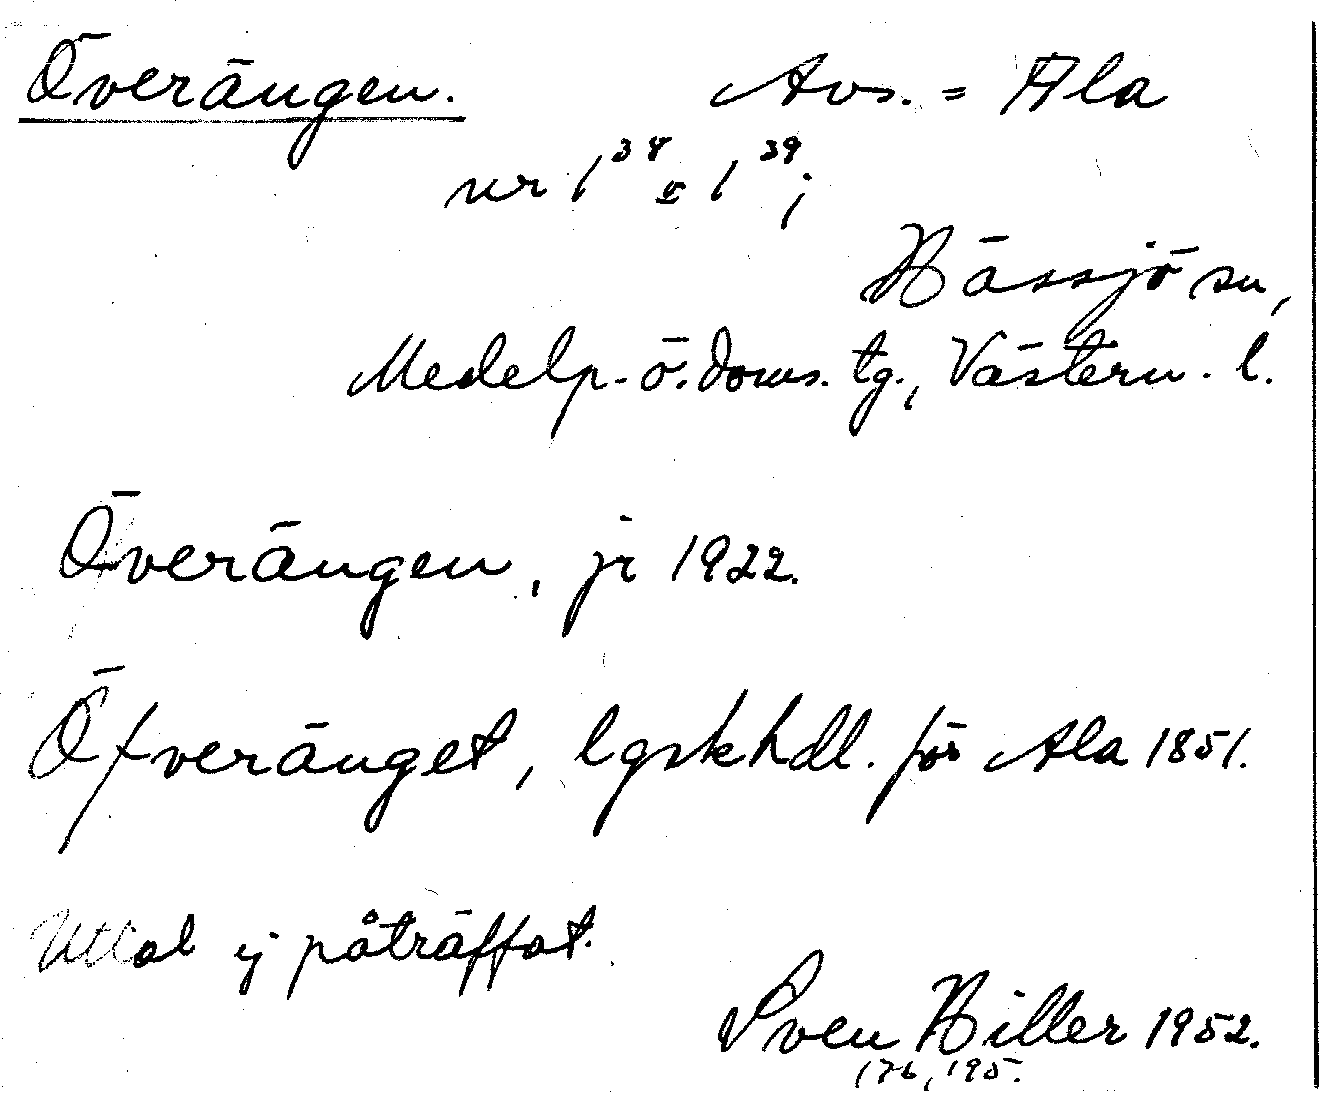 Överängen. Avs. = Ala
nr 1³⁸ o 1³⁹;
Hässjö sn,
Medelp. ö. doms. tg., Västern. l.
Överängen, jr 1922.
Öfveränget, lgskhdl. för Ala 1851.
Uttal ej påträffat.
Sven Hiller 1952.
176, 195.